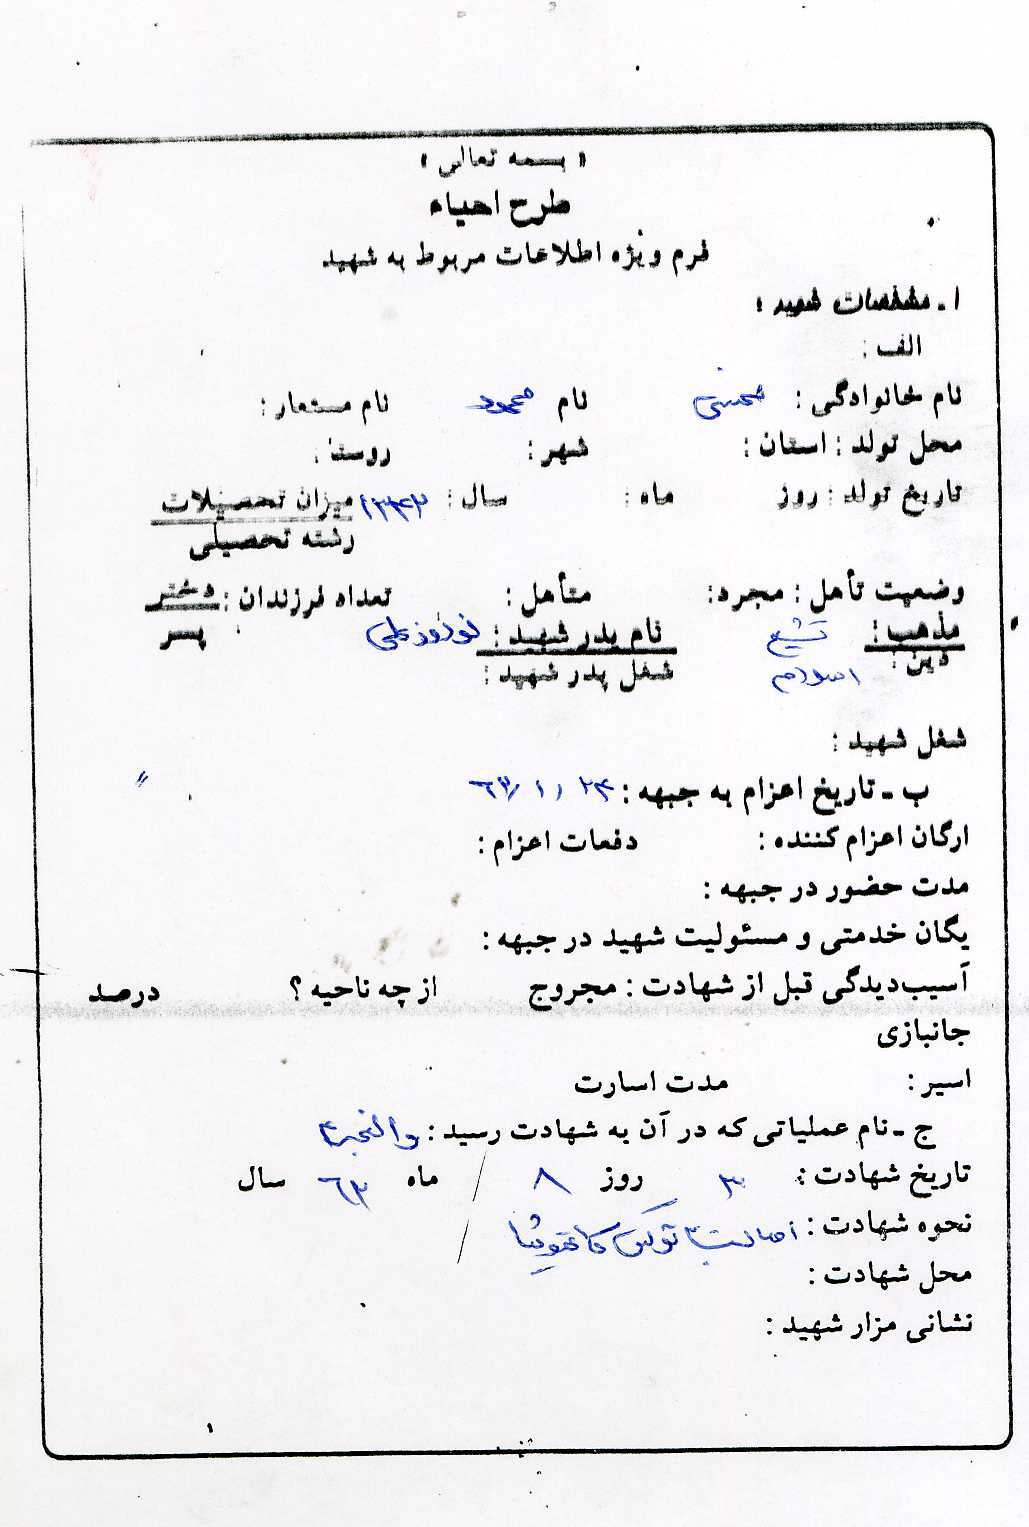 « بسمه تعالی »
طرح احیاء
فرم ویژه اطلاعات مربوط به شهید
۱ ـ مشخصات شهید :
الف :
نام خانوادگی : محسنی نام محمود نام مستعار :
محل تولد : استان : شهر : روستا :
تاریخ تولد : روز ماه : سال : ۱۳۴۳ میزان تحصیلات
رشته تحصیلی
وضعیت تأهل : مجرد: متأهل : تعداد فرزندان : دختر
مذهب : تشیع نام پدر شهید : نوروزعلی پسر
دین : اسلام شغل پدر شهید :
شغل شهید :
ب ـ تاریخ اعزام به جبهه : ۶۳/۱/۲۴ "
ارگان اعزام کننده : دفعات اعزام :
مدت حضور در جبهه :
یگان خدمتی و مسئولیت شهید در جبهه :
آسیب‌دیدگی قبل از شهادت : مجروح از چه ناحیه ؟ درصد
جانبازی
اسیر : مدت اسارت
ج ـ نام عملیاتی که در آن به شهادت رسید : والفجر۴
تاریخ شهادت : ۳ روز ۸ / ماه ۶۳ سال
نحوه شهادت : اصابت ترکش /
محل شهادت :
نشانی مزار شهید :
۱